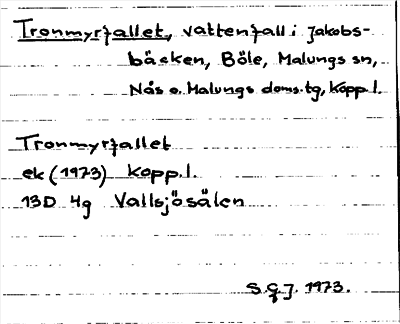 Tronmyrfallet, vattenfall i Jakobs-
bäcken, Böle, Malungs sn,
Nås o. Malungs doms.tg, Kopp l.
Tronmyrfallet
ek (1973) Kopp.l.
13D 4g Vallsjösälen
S.G.J. 1973.